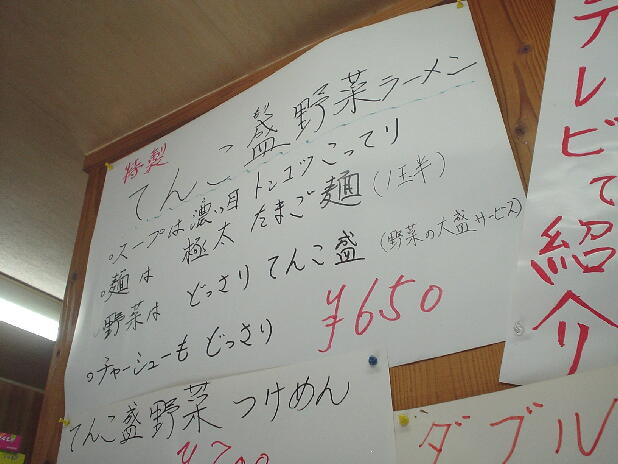 特製
てんこ盛野菜ラーメン
。スープは濃い目トンコツこってり
。麺は 極太 たまご麺 (1玉半)
。野菜は どっさり てんこ盛 (野菜の大盛サービス)
。チャーシューも どっさり
¥650
てんこ盛野菜 つけめん
¥700
テレビで紹介
ダブル